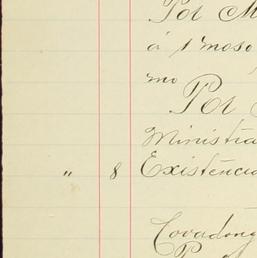 Pot M
á 1 moso
mo
Pot
Ministra
" 8 Existencia
Covadong